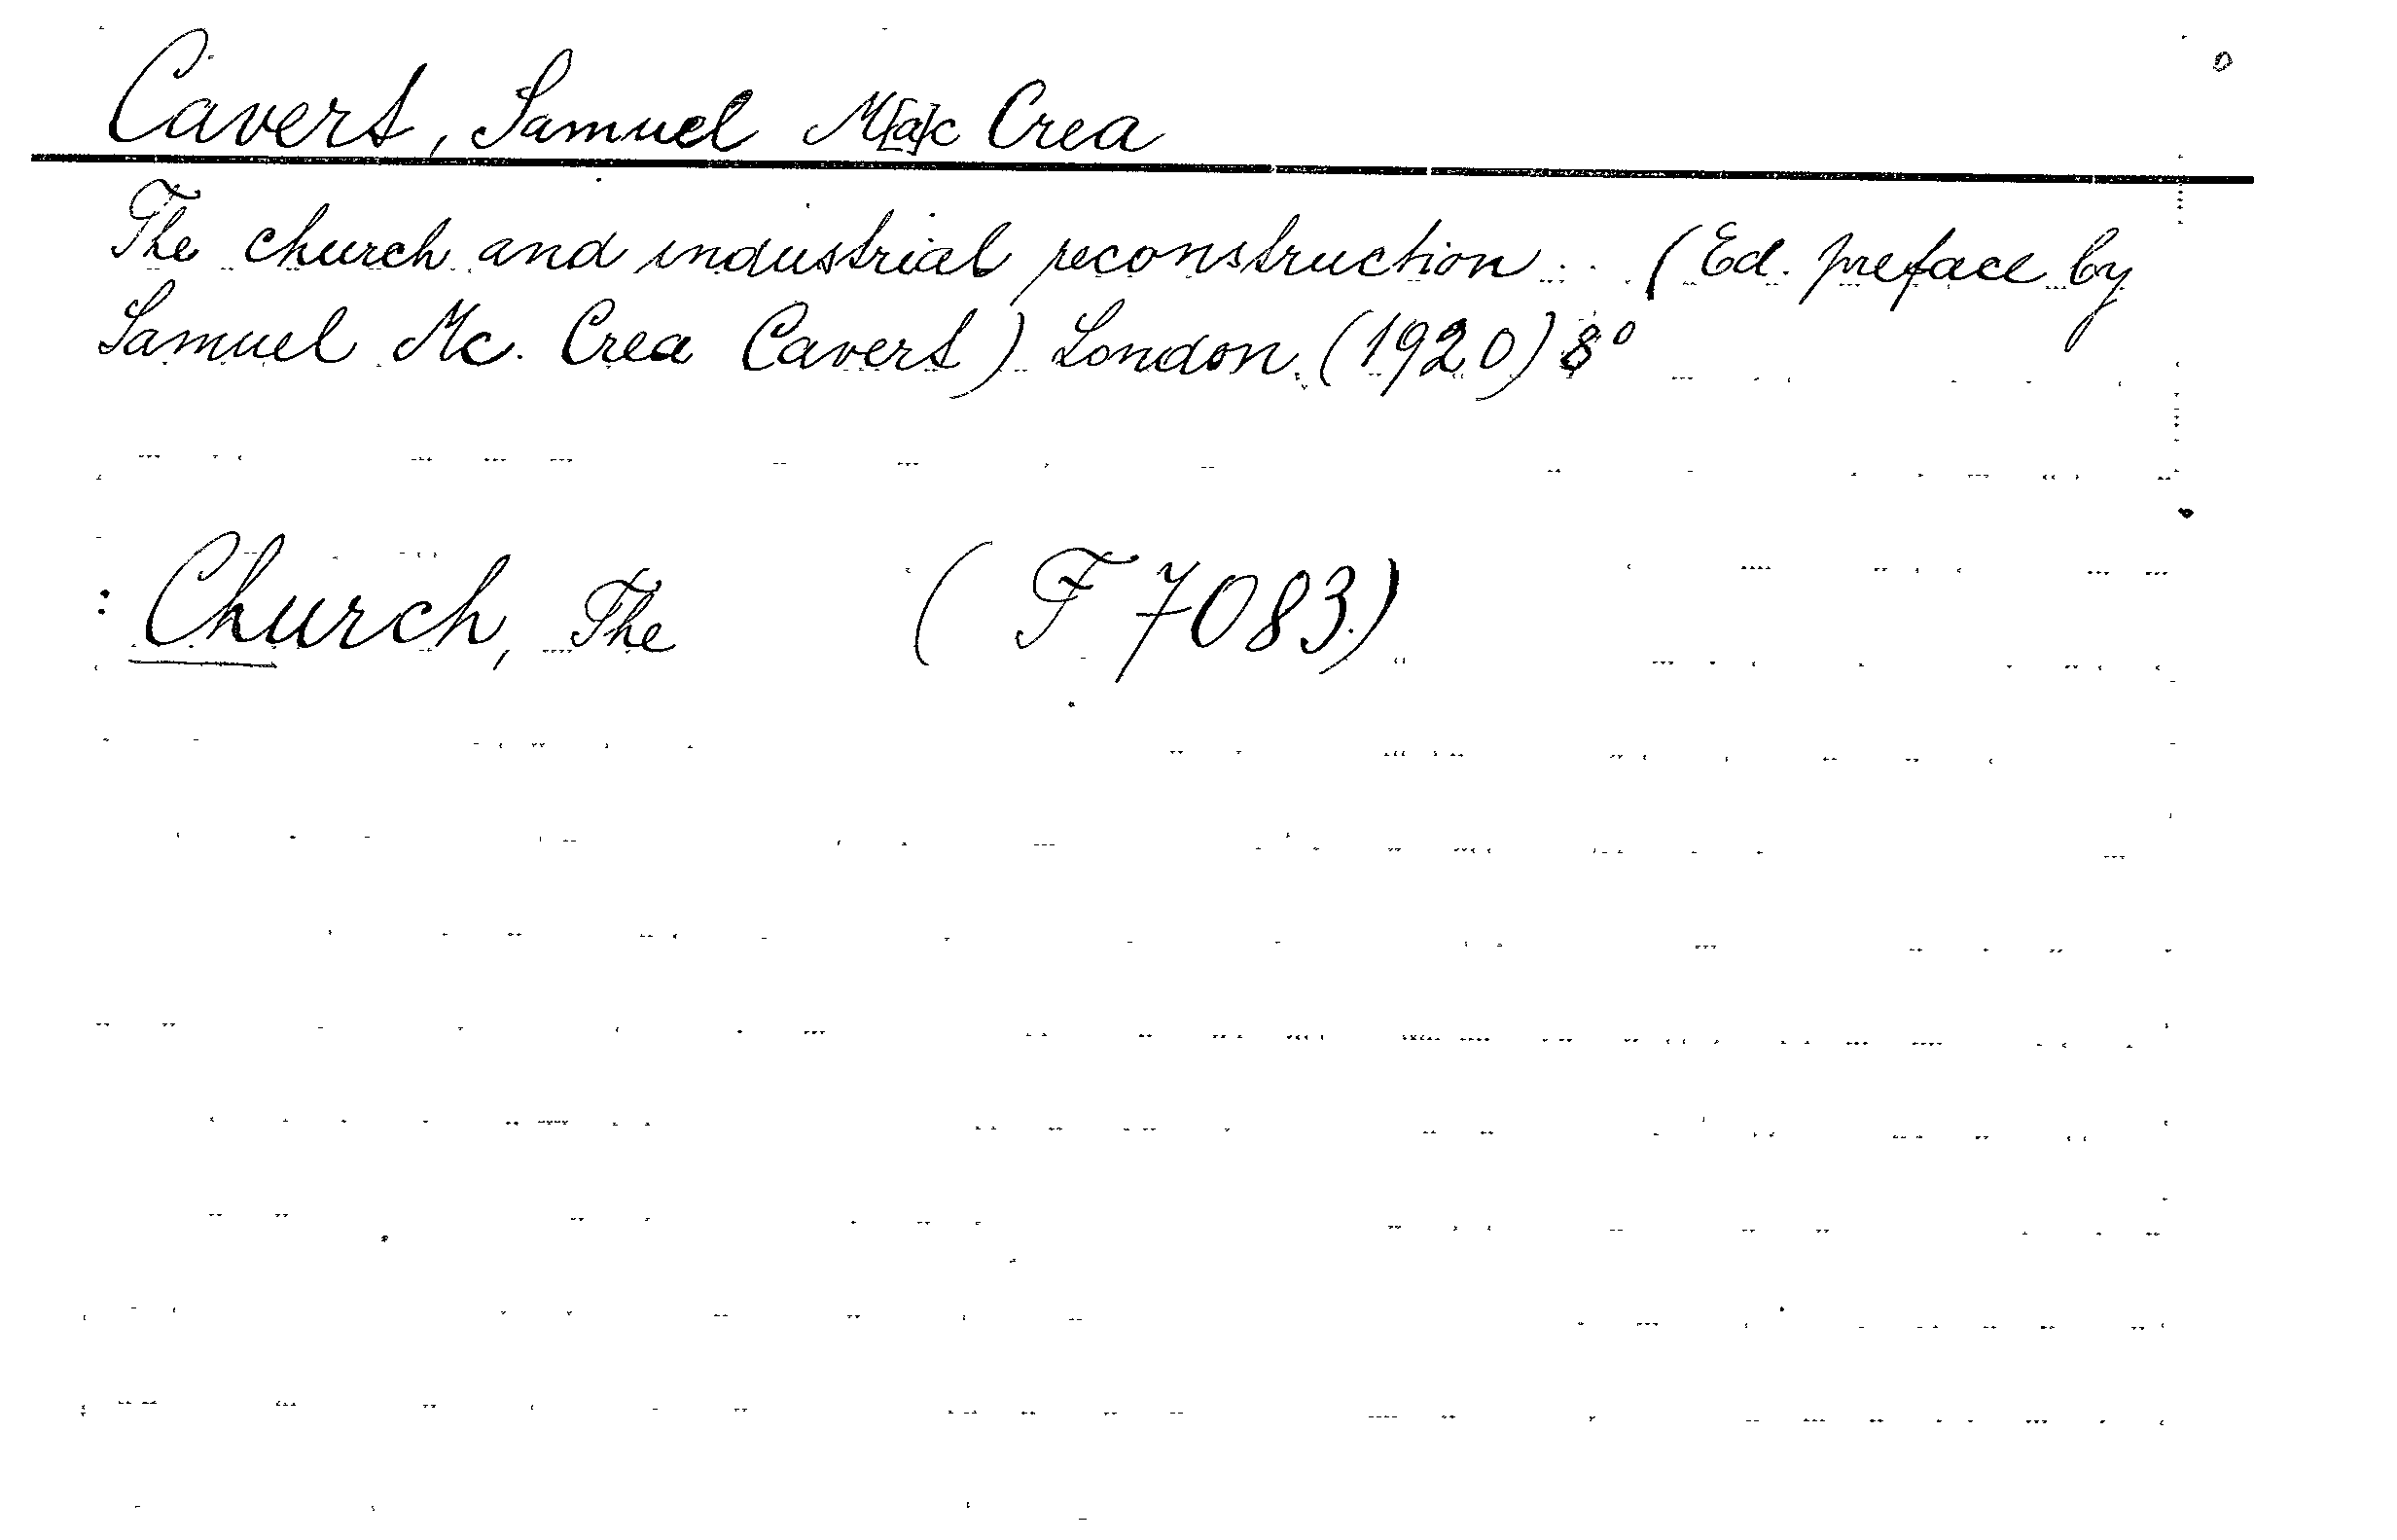 Cavert, Samuel M[a]c Crea
The church and industrial reconstruction... (Ed. preface by
Samuel Mc. Crea Cavert) London (1920) 8°
: Church, The (F 7083)